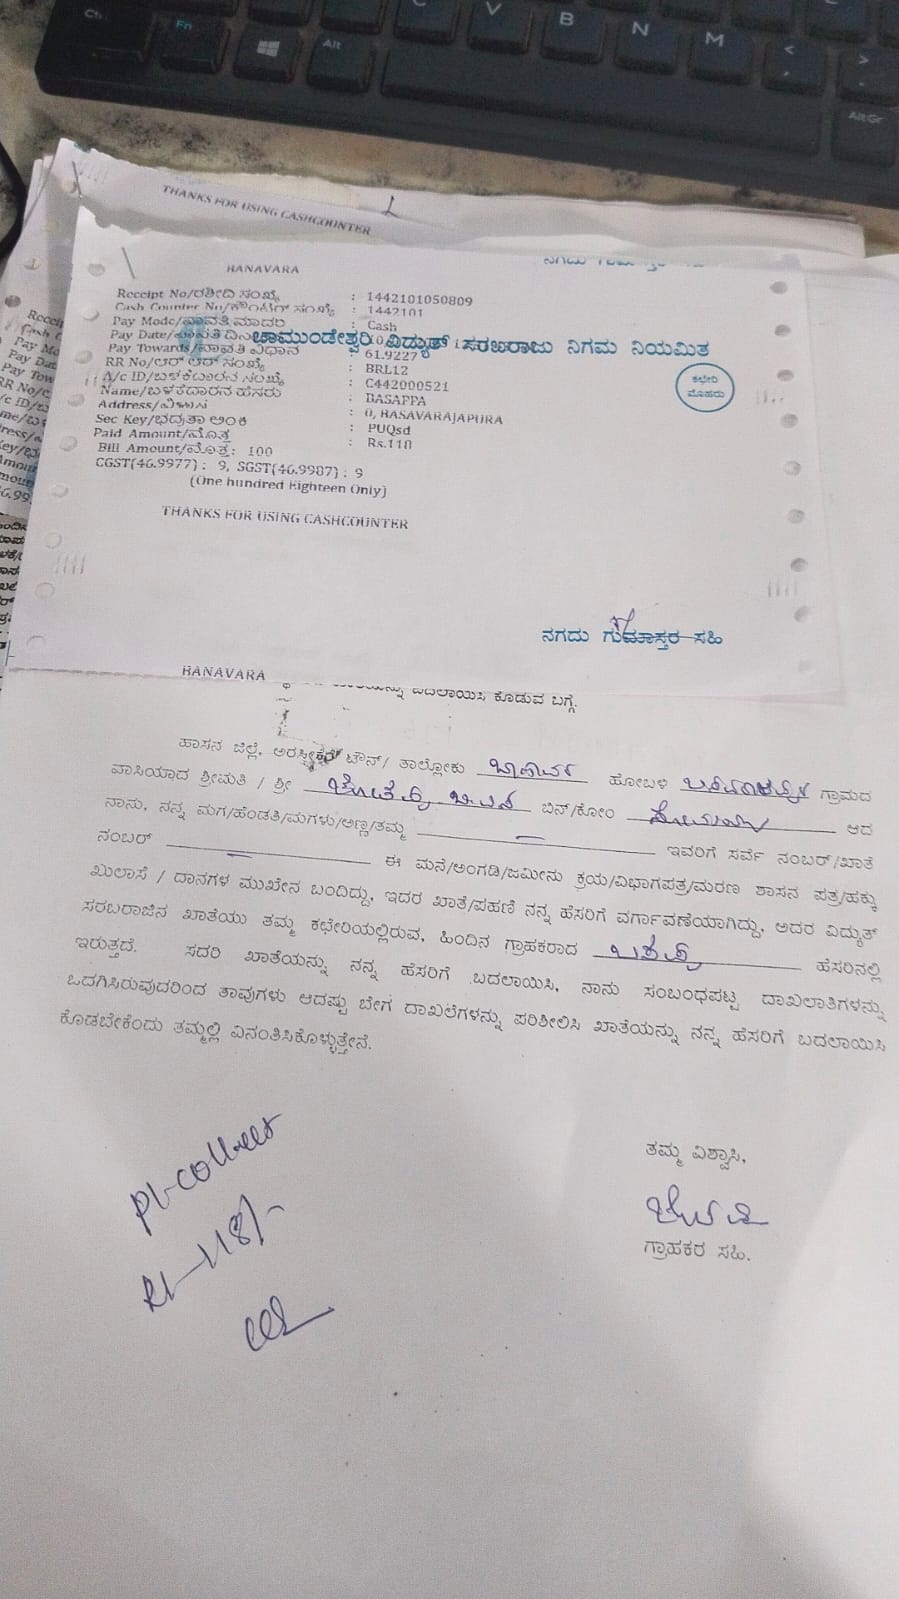 THANKS FOR USING CASHCOUNTER
BANAVARA
Receipt No/ರಶೀದಿ ಸಂಖ್ಯೆ : 1442101050809
Cash Counter No/ಕೌಂಟರ್ ಸಂಖ್ಯೆ : 1442101
Pay Mode/ಪಾವತಿ ಮಾದರಿ : Cash
Pay Date/ಪಾವತಿ ದಿನ
ಚಾಮುಂಡೇಶ್ವರಿ ವಿದ್ಯುತ್ ಸರಬರಾಜು ನಿಗಮ ನಿಯಮಿತ
Pay Towards/ಪಾವತಿ ವಿಧಾನ : 61.9227
RR No/ಆರ್ ಆರ್ ಸಂಖ್ಯೆ : BRL12
A/c ID/ಬಳಕೆದಾರನ ಸಂಖ್ಯೆ : C442000521
Name/ಬಳಕೆದಾರನ ಹೆಸರು : BASAPPA
Address/ವಿಳಾಸ : 0, BASAVARAJAPURA
Sec Key/ಭದ್ರತಾ ಅಂಕಿ : PUQsd
Paid Amount/ಮೊತ್ತ : Rs.118
Bill Amount/ಮೊತ್ತ: 100
CGST(46.9977) : 9, SGST(46.9987) : 9
(One hundred Eighteen Only)
THANKS FOR USING CASHCOUNTER
ಕಛೇರಿ
ಮೊಹರು
ನಗದು ಗುಮಾಸ್ತರ ಸಹಿ
BANAVARA
ಬದಲಾಯಿಸಿ ಕೊಡುವ ಬಗ್ಗೆ.
ಹಾಸನ ಜಿಲ್ಲೆ, ಅರಸೀಕೆರೆ ಟೌನ್/ ತಾಲ್ಲೋಕು ಬಾಣಾವರ ಹೋಬಳಿ ಗ್ರಾಮದ
ವಾಸಿಯಾದ ಶ್ರೀಮತಿ / ಶ್ರೀ ಬಿನ್/ಕೋಂ ಆದ
ನಾನು, ನನ್ನ ಮಗ/ಹೆಂಡತಿ/ಮಗಳು/ಅಣ್ಣ/ತಮ್ಮ — ಇವರಿಗೆ ಸರ್ವೆ ನಂಬರ್/ಖಾತೆ
ನಂಬರ್ — ಈ ಮನೆ/ಅಂಗಡಿ/ಜಮೀನು ಕ್ರಯ/ವಿಭಾಗಪತ್ರ/ಮರಣ ಶಾಸನ ಪತ್ರ/ಹಕ್ಕು
ಖುಲಾಸೆ / ದಾನಗಳ ಮುಖೇನ ಬಂದಿದ್ದು, ಇದರ ಖಾತೆ/ಪಹಣಿ ನನ್ನ ಹೆಸರಿಗೆ ವರ್ಗಾವಣೆಯಾಗಿದ್ದು, ಅದರ ವಿದ್ಯುತ್
ಸರಬರಾಜಿನ ಖಾತೆಯು ತಮ್ಮ ಕಛೇರಿಯಲ್ಲಿರುವ, ಹಿಂದಿನ ಗ್ರಾಹಕರಾದ ಬಸಪ್ಪ ಹೆಸರಿನಲ್ಲಿ
ಇರುತ್ತದೆ. ಸದರಿ ಖಾತೆಯನ್ನು ನನ್ನ ಹೆಸರಿಗೆ ಬದಲಾಯಿಸಿ, ನಾನು ಸಂಬಂಧಪಟ್ಟ ದಾಖಲಾತಿಗಳನ್ನು
ಒದಗಿಸಿರುವುದರಿಂದ ತಾವುಗಳು ಆದಷ್ಟು ಬೇಗ ದಾಖಲೆಗಳನ್ನು ಪರಿಶೀಲಿಸಿ ಖಾತೆಯನ್ನು ನನ್ನ ಹೆಸರಿಗೆ ಬದಲಾಯಿಸಿ
ಕೊಡಬೇಕೆಂದು ತಮ್ಮಲ್ಲಿ ವಿನಂತಿಸಿಕೊಳ್ಳುತ್ತೇನೆ.
ತಮ್ಮ ವಿಶ್ವಾಸಿ,
ಗ್ರಾಹಕರ ಸಹಿ.
Pl-collect
Rs-118/-